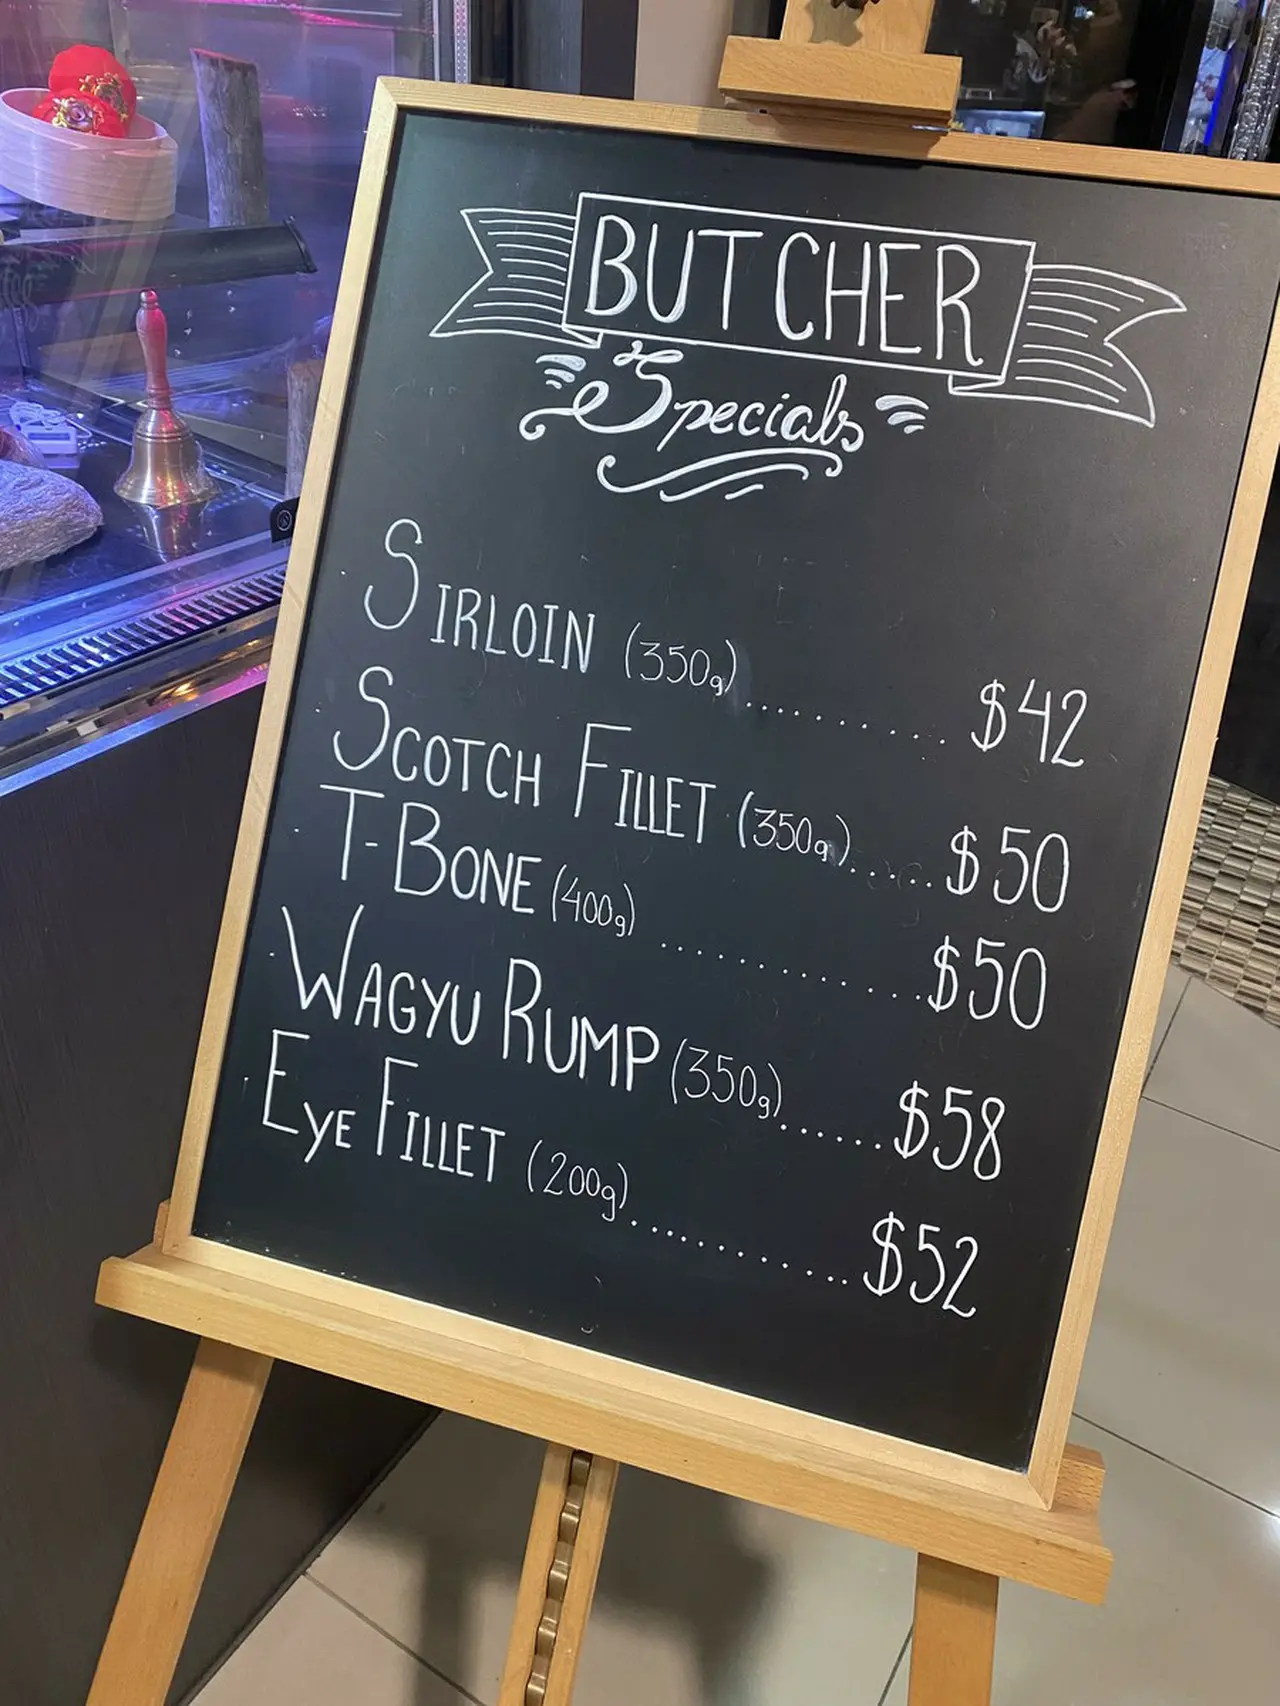 BUTCHER
Specials
SIRLOIN (350g).......... $42
SCOTCH FILLET (350g)...... $50
T-BONE (400g) ............ $50
WAGYU RUMP (350g)...... $58
EYE FILLET (200g)............ $52